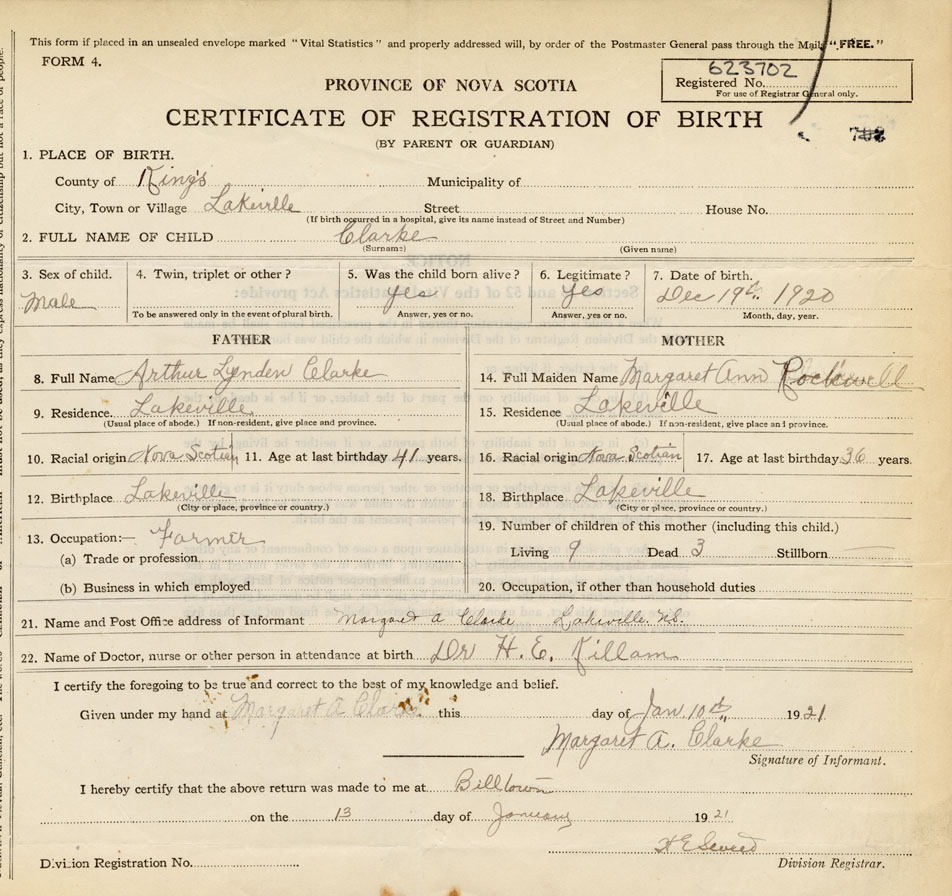 This form if placed in an unsealed envelope marked "Vital Statistics" and properly addressed will, by order of the Postmaster General pass through the Mail, "FREE."
FORM 4.
623702
Registered No.
For use of Registrar General only.
PROVINCE OF NOVA SCOTIA
CERTIFICATE OF REGISTRATION OF BIRTH
702
(BY PARENT OR GUARDIAN)
1. PLACE OF BIRTH.
County of King's Municipality of
City, Town or Village Lakeville Street House No.
(If birth occurred in a hospital, give its name instead of Street and Number)
2. FULL NAME OF CHILD Clarke
(Surname) (Given name)
3. Sex of child. 4. Twin, triplet or other? 5. Was the child born alive? 6. Legitimate? 7. Date of birth.
Male yes yes Dec 19th 1920
To be answered only in the event of plural birth. Answer, yes or no. Answer, yes or no. Month, day, year.
FATHER MOTHER
8. Full Name Arthur Lynden Clarke 14. Full Maiden Name Margaret Ann Rockwell
9. Residence. Lakeville 15. Residence Lakeville
(Usual place of abode.) If non-resident, give place and province. (Usual place of abode.) If non-resident, give place and province.
10. Racial origin Nova Scotian 11. Age at last birthday 41 years. 16. Racial origin Nova Scotian 17. Age at last birthday 36 years.
12. Birthplace Lakeville 18. Birthplace Lakeville
(City or place, province or country.) (City or place, province or country.)
13. Occupation:— Farmer 19. Number of children of this mother (including this child.)
(a) Trade or profession Living 9 Dead 3 Stillborn
(b) Business in which employed 20. Occupation, if other than household duties
21. Name and Post Office address of Informant Margaret A Clarke Lakeville N.S.
22. Name of Doctor, nurse or other person in attendance at birth Dr H. E. Killam
I certify the foregoing to be true and correct to the best of my knowledge and belief.
Given under my hand at Margaret A Clarke this day of Jan. 10th 1921
Margaret A. Clarke
Signature of Informant.
I hereby certify that the above return was made to me at Billtown
on the 13 day of January 1921
Division Registration No. Division Registrar.